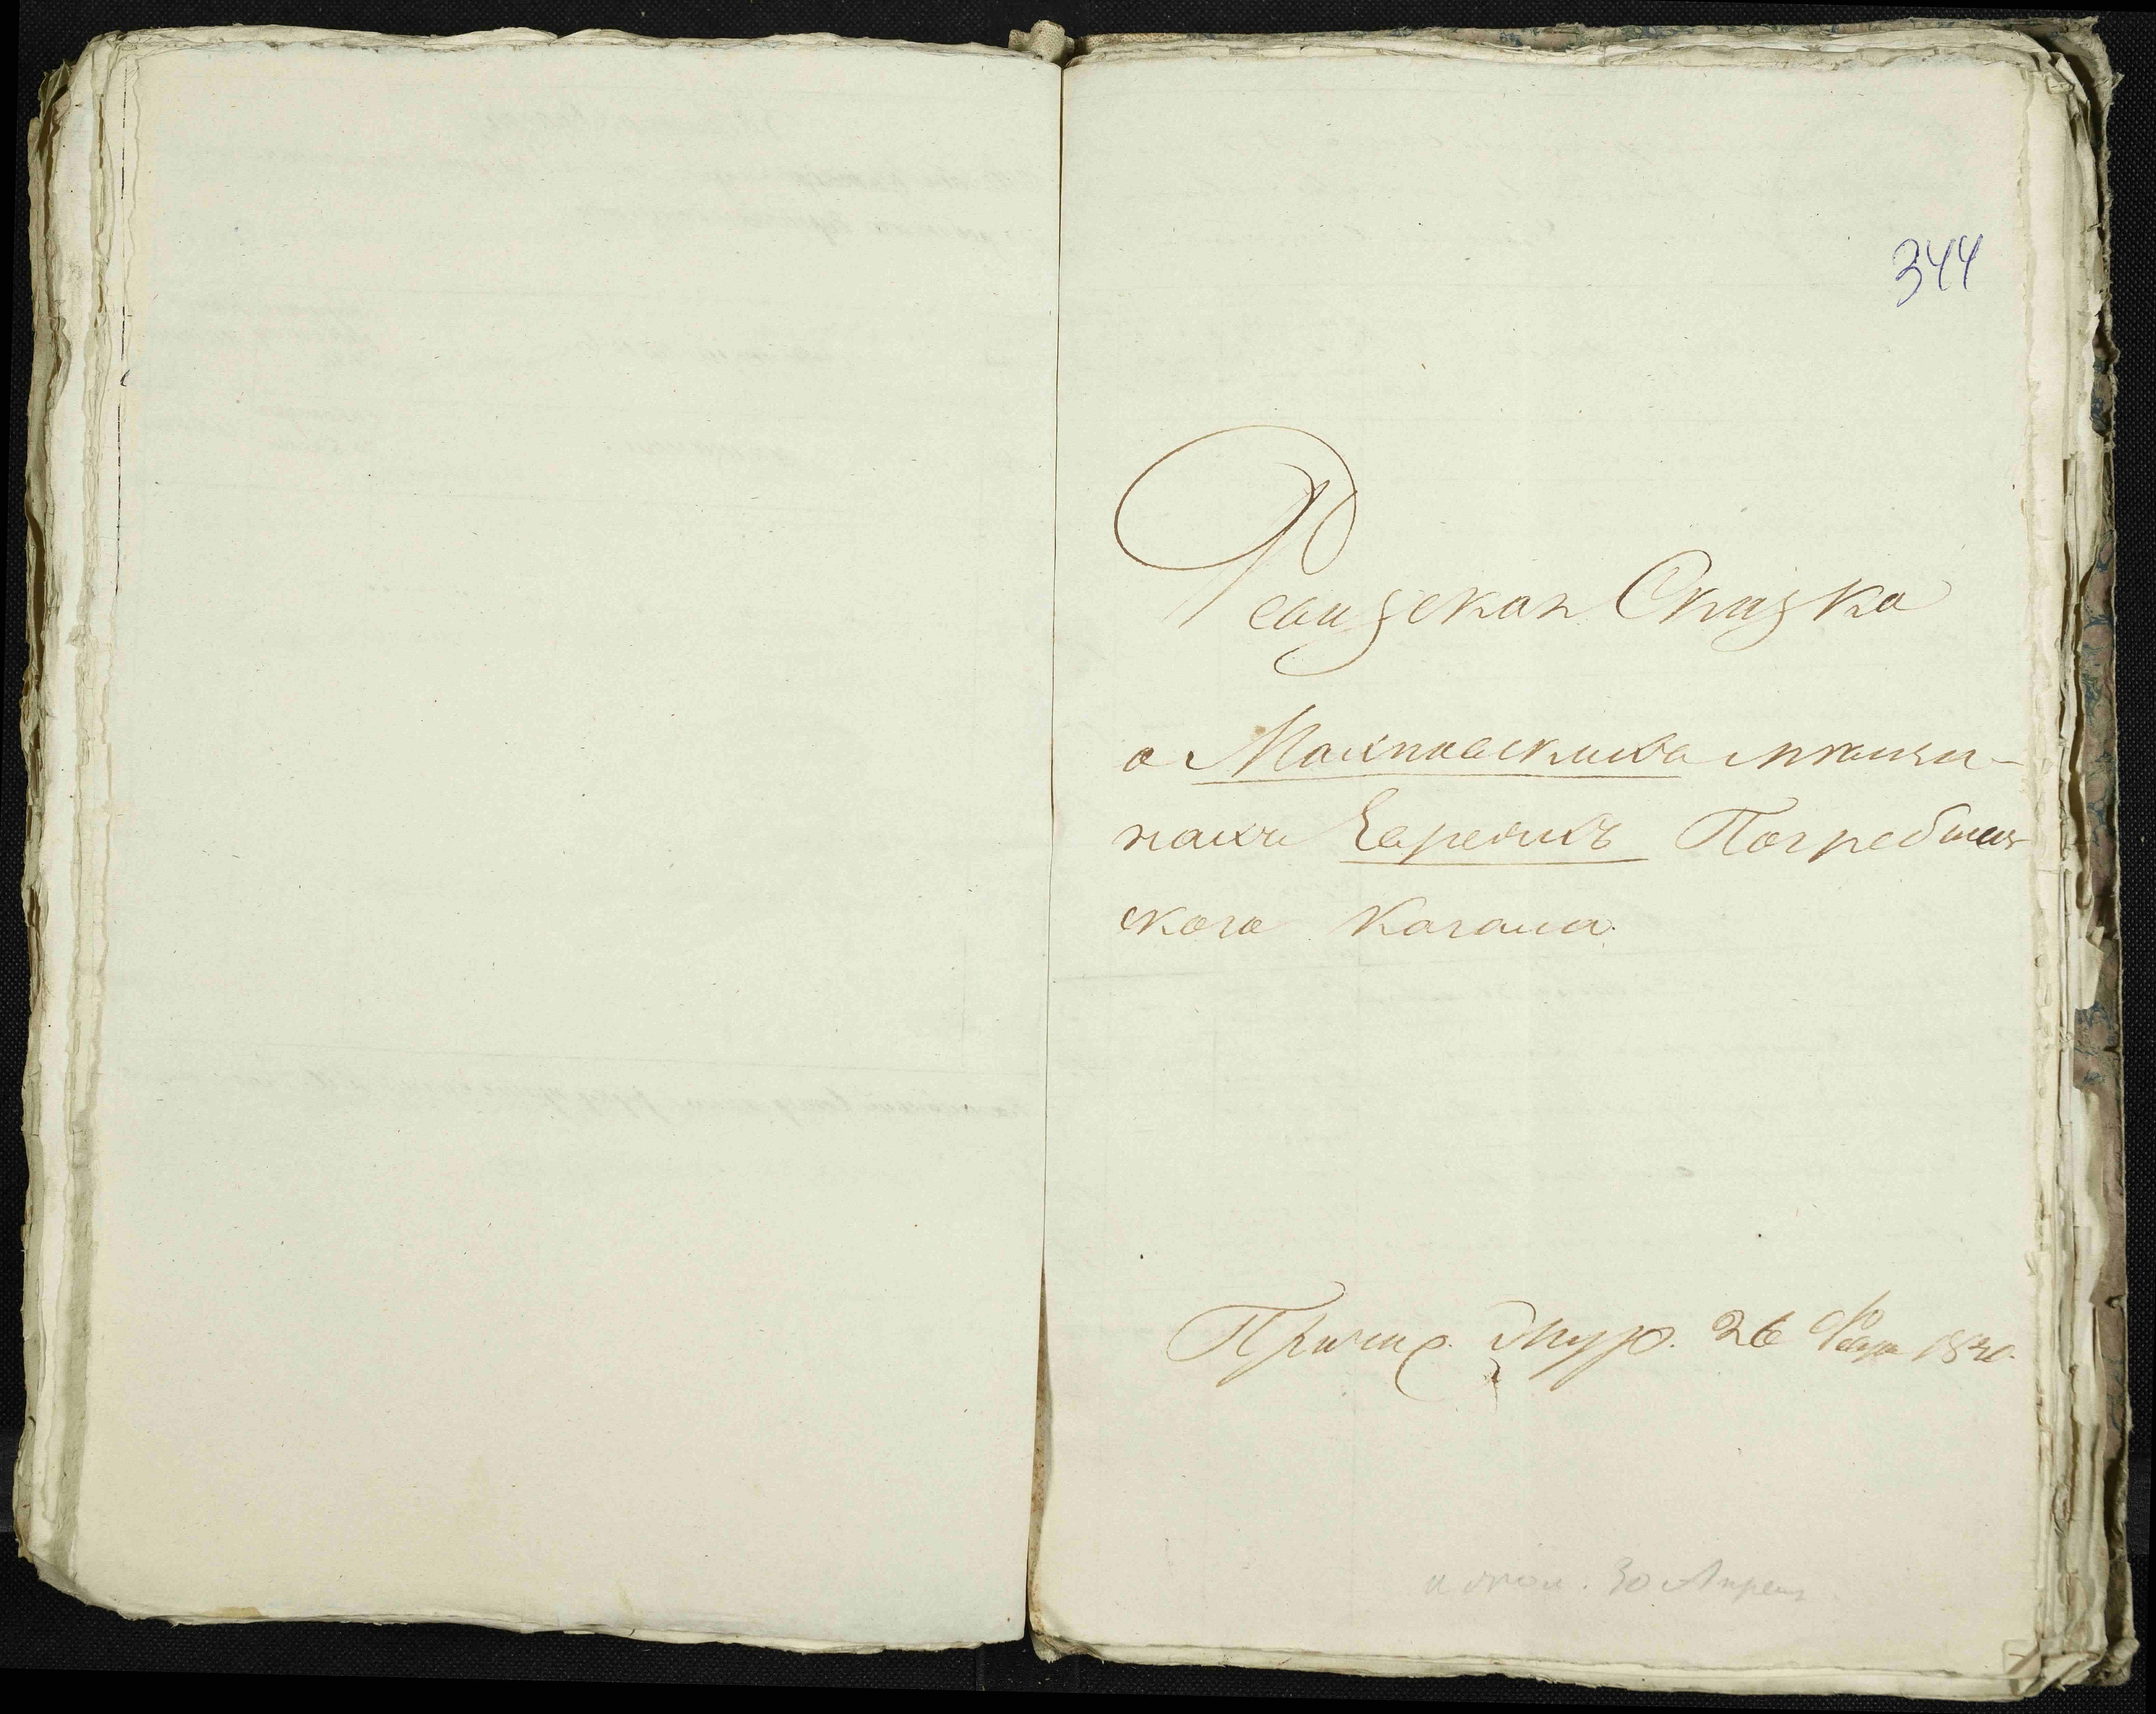 344
Ревизская Сказка
о Махновскихъ мѣщан-
нахъ Евреихъ Погребищен
ского Кагала.
журн. 26 Февр 1850.
30 Апреля